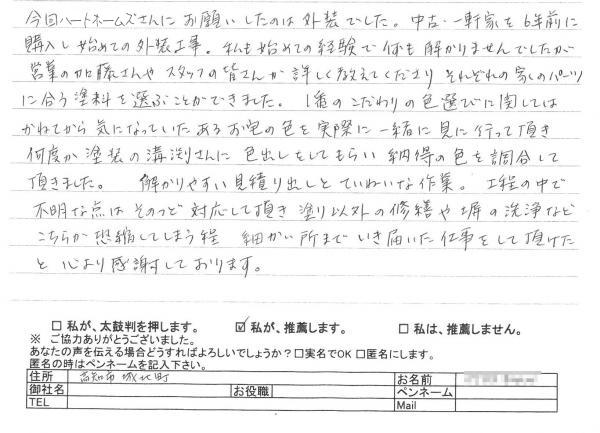 今回ハートホームズさんにお願いしたのは外装でした。中古・一軒家を6年前に
購入し始めての外装工事。私も始めての経験で何も解かりませんでしたが
営業の加藤さんや スタッフの皆さんが 詳しく教えてくださり それぞれの家のパーツ
に合う塗料を選ぶことができました。 1番のこだわりの色選びに関しては
かねてから 気になっていた あるお宅の色を実際に一緒に見に行って頂き
何度か塗装の溝渕さんに 色出しをしてもらい 納得の色を調合して
頂きました。 解かりやすい見積り出しと ていねいな作業。 工程の中で
不明な点は そのつど 対応して頂き 塗り以外の修繕や塀の洗浄など
こちらが恐縮してしまう程 細かい所までいき届いた仕事をして頂けた
と 心より感謝しております。
□ 私が、太鼓判を押します。 ☑ 私が、推薦します。 □ 私は、推薦しません。
※ ご協力ありがとうございました。
あなたの声を伝える場合どうすればよろしいでしょうか?□実名でOK □匿名にします。
匿名の時はペンネームを記入下さい。
住所 高知市 城北町 お名前
御社名 お役職 ペンネーム
TEL Mail